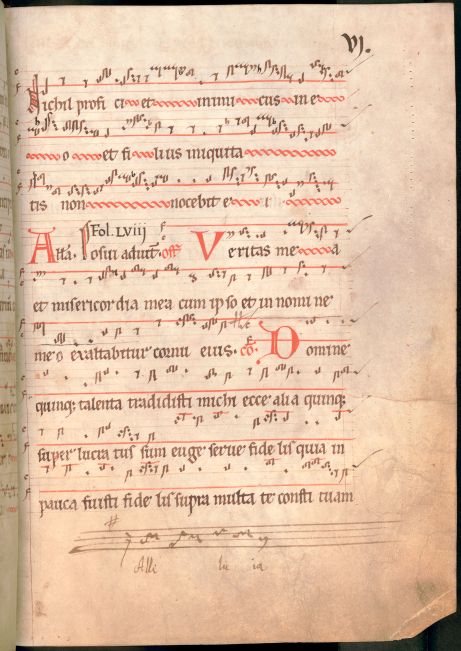 VI.
Nichil profi ci et inimi cus in e
o et fi lius iniquita
tis non nocebit e i
Fol. LVIII
Alla. Posui adiut. off. Veritas me a
et misericordia mea cum ipso et in nomi ne
me o exaltabitur cornu eius. co. Domine
quinq; talenta tradidisti michi ecce alia quinq;
super lucra tus sum euge serve fide lis quia in
pauca fuisti fide lis supra multa te consti tuam
Alle lu ia